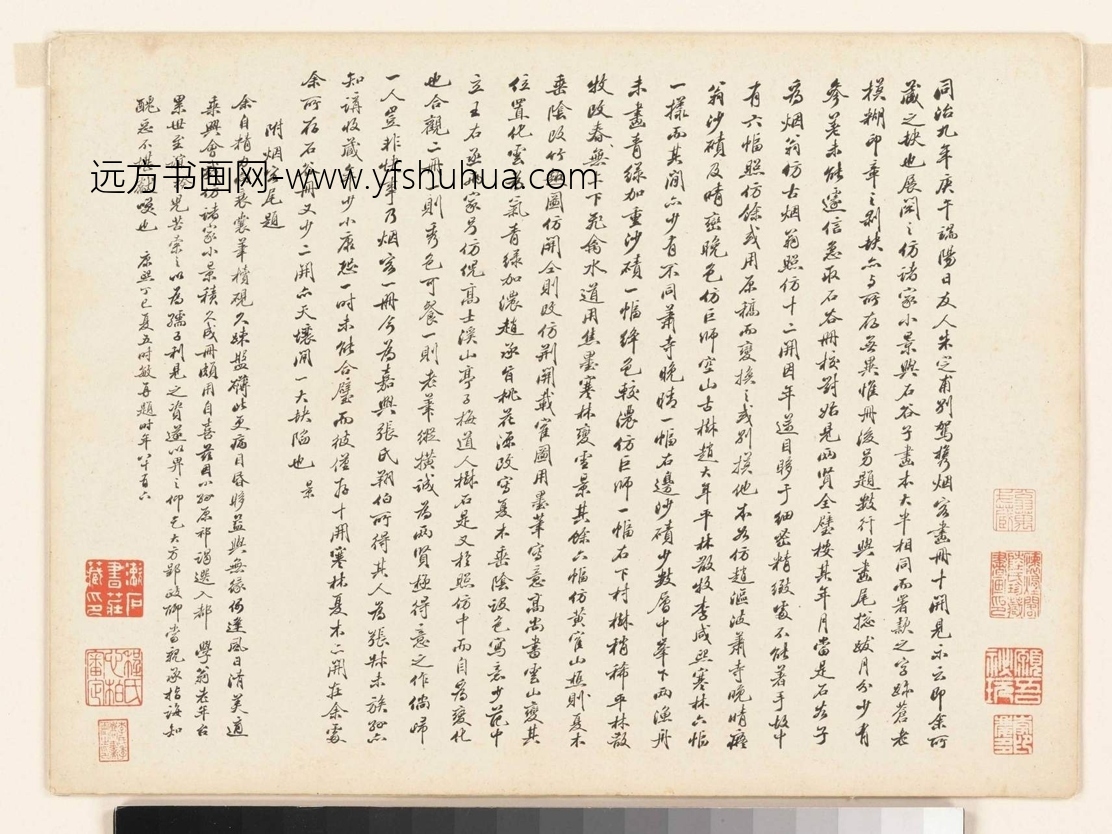 同治九年庚午端陽日友人朱定甫別駕携烟客畫冊十開見示云即余所
藏之缺也展閱之仿諸家小景與石谷子畫本大半相同而署款之字極蒼老
模糊印章之剝缺亦與所存無異惟冊後另題數行與畫尾總跋月分少有
參差未能遽信急取石谷冊校對始見兩賢全璧按其年月當是石谷子
為烟翁仿古烟翁照仿十二開因年邁目眵于細密精緻處不能著手故中
有六幅照仿餘或用原稿而變換之或別摸他本如仿趙漚波蕭寺晚晴癡
翁沙磧及晴巒晚色仿巨師空山古樹趙大年平林散牧李咸熙寒林六幅
一樣而其間亦少有不同蕭寺晚晴一幅右邊沙磧少數層中華下兩漁舟
未畫青綠加重沙磧一幅絳色較濃仿巨師一幅右下村樹稍稀平林散
牧改春無下下飛禽水道用焦墨寒林變雪景其餘六幅仿黃崔山樵則夏木
垂陰改竹幽圖仿關仝則改仿荊關載寉圖用墨筆寫意高尚書雲山變其
位置化雲為氣青綠加濃趙承旨桃花源改寫夏木垂陰設色寫意少范中
立王右丞兩家另仿倪高士溪山亭子梅道人樹石是又於照仿中而自為變化
也合觀二冊則秀色可餐一則老筆縱橫誠為兩賢極得意之作倘歸
一人豈非快事乃烟客一冊今為嘉興張氏翔伯所得其人為張叔未族孫亦
知講收藏年少小康恐一時未能合璧而彼僅存十開寒林夏木二開在余處
余所存石谷冊又少二開亦天壤間一大缺陷也 景
附烟客尾題
余自精力衰筆橫硯久疎盤礴此更病目昏眵益與無緣何逢風日清美適
乘興會仿諸家小景積久成冊頗用自喜茲因小孫原祁謁選入都 學翁老年台
累世至誼兒苦索之以為孺子利見之資遂以畀之仰 大方鄙政聊當親承指誨知
醜惡不堪噴也 康熙丁巳夏五時敏再題時年八十有六
漱石書莊藏印
程氏心柏審定
远方书画网-www.yfshuhua.com